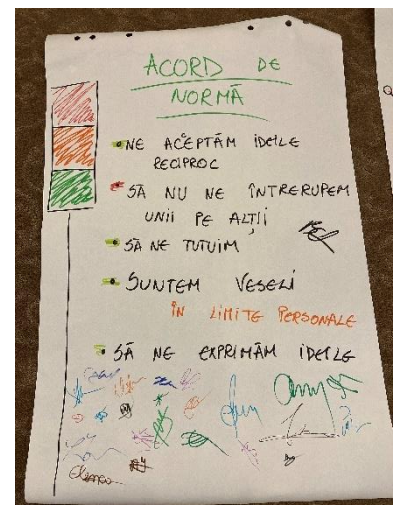 ACORD DE
NORMĂ
NE ACEPTĂM IDEILE
RECIPROC
SĂ NU NE ÎNTRERUPEM
UNII PE ALȚII
SĂ NE TUTUIM
SUNTEM VESELI
ÎN LIMITE PERSONALE
SĂ NE EXPRIMĂM IDEILE